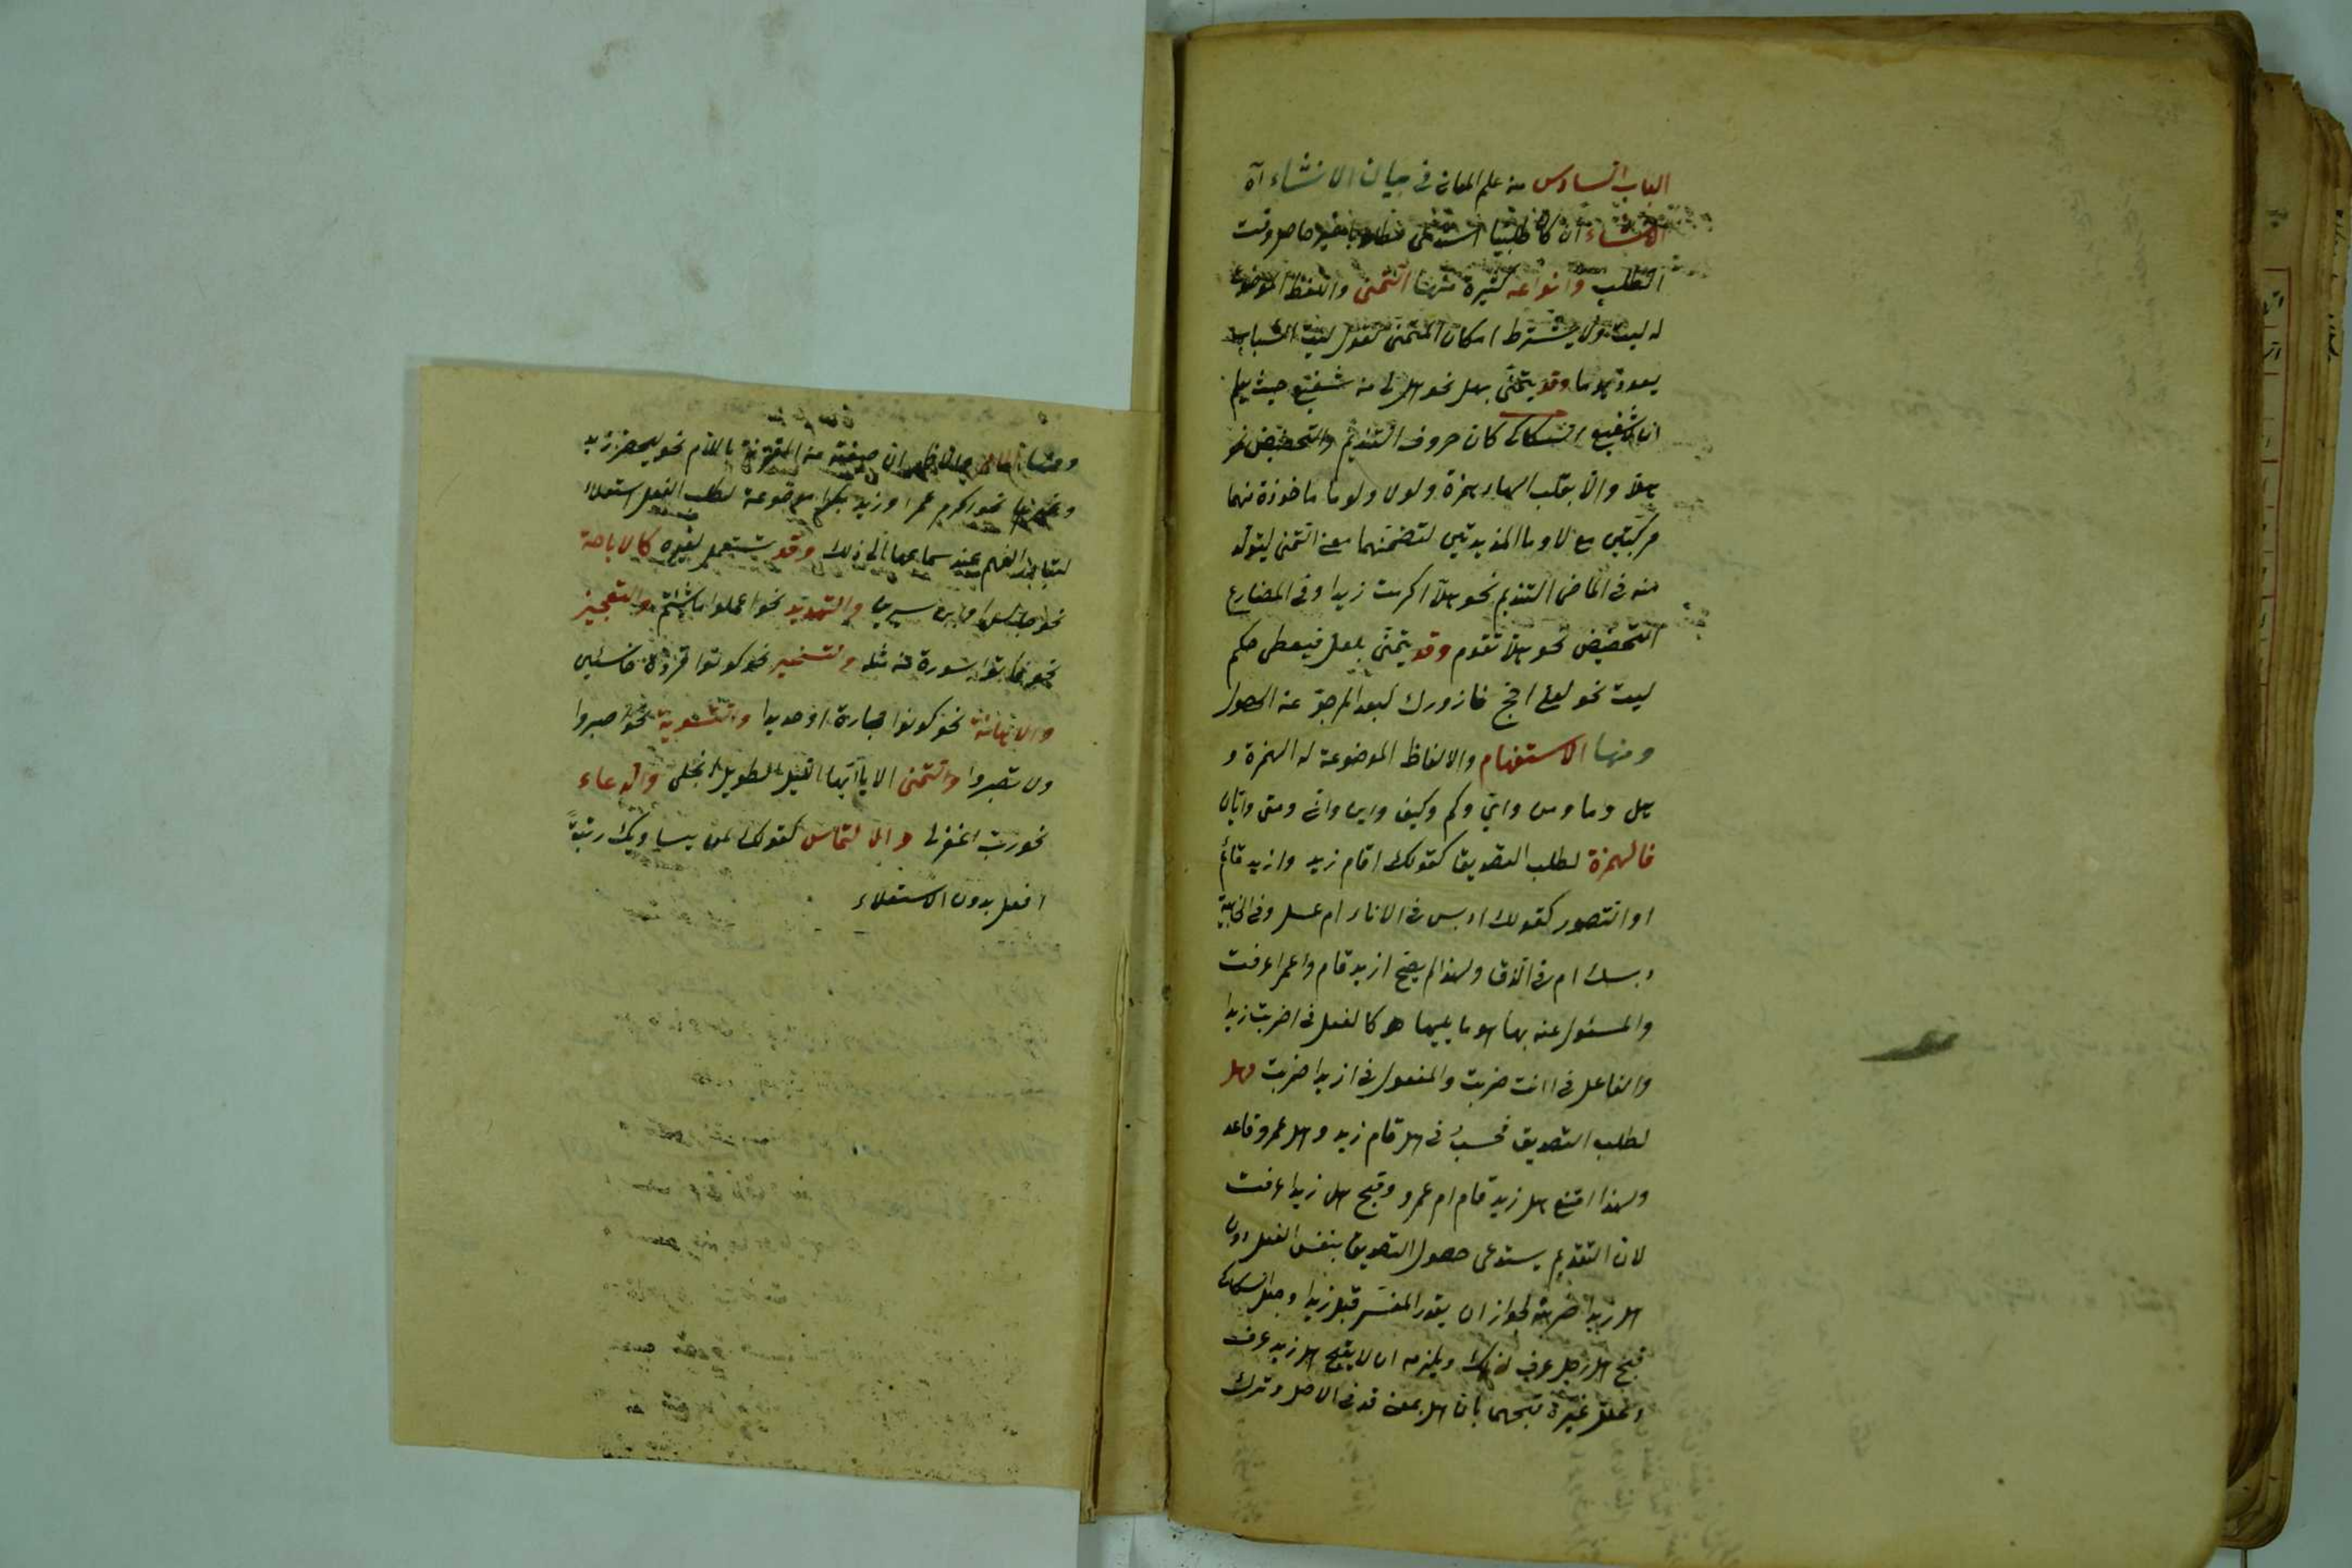 الباب السادس من علم المعانى فى بيان الانشاء اه
الانشاء ان كان طلبيا استدعى مطلوبا غير حاصل وقت
الطلب وانواعه كثيرة منها التمنى واللفظ الموضوع
له ليت ولا يشترط امكان المتمنى تقول ليت الشباب
يعود يوما وقد يتمنى بهل نحو هل لى من شفيع حيث يعلم
ان لا شفيع السكاكى كان حروف التنديم والتحضيض نحو
هلا والا بقلب الهاء همزة ولولا ولوما ماخوذة منهما
مركبتين مع لا وما المزيدتين لتضمنهما معنى التمنى ليتولد
منه فى الماضى التنديم نحو هلا اكرمت زيدا وفى المضارع
التحضيض نحو هلا تقوم وقد يتمنى بلعل فيعطى حكم
ليت نحو لعلى احج فازورك لبعد المرجو عن الحصول
ومنها الاستفهام والالفاظ الموضوعة له الهمزة و
هل وما ومن واى وكم وكيف واين وانى ومتى وايان
فالهمزة لطلب التصديق كقولك اقام زيد وازيد قائم
او التصور كقولك ادبس فى الاناء ام عسل وفى الخابية
دبسك ام فى الزق ولهذا لم يقبح ازيد قام واعمرا عرفت
والمسئول عنه بها هو ما يليها كالفعل فى اضربت زيدا
والفاعل فى اانت ضربت والمفعول فى ازيدا ضربت وهل
لطلب التصديق فحسب فى هل قام زيد وهل عمرو قاعد
ولهذا امتنع هل زيد قام ام عمرو وقبح هل زيدا عرفت
لان التقديم يستدعى حصول التصديق بنفس الفعل دون
هل زيدا ضربته لجواز ان يقدر المفسر قبل زيدا وجعل السكاكى
قبح هل رجل عرف لذلك ويلزمه ان لا يقبح هل زيد عرف
وعلل غيره قبحهما بان هل بمعنى قد فى الاصل وترك
ومنها الامر والاظهر ان صيغته من المقترنة باللام نحو ليحضر زيد
وغيرها نحو اكرم عمرا ورويد بكرا موضوعة لطلب الفعل استعلاء
لتبادر الفهم عند سماعها الى ذلك وقد تستعمل لغيره كالاباحة
نحو جالس الحسن او ابن سيرين والتهديد نحو اعملوا ما شئتم والتعجيز
نحو فاتوا بسورة من مثله والتسخير نحو كونوا قردة خاسئين
والاهانة نحو كونوا حجارة او حديدا والتسوية نحو اصبروا
او لا تصبروا والتمنى الا يا ايها الليل الطويل الا انجلى والدعاء
نحو رب اغفر لى والالتماس كقولك لمن يساويك رتبة
افعل بدون الاستعلاء